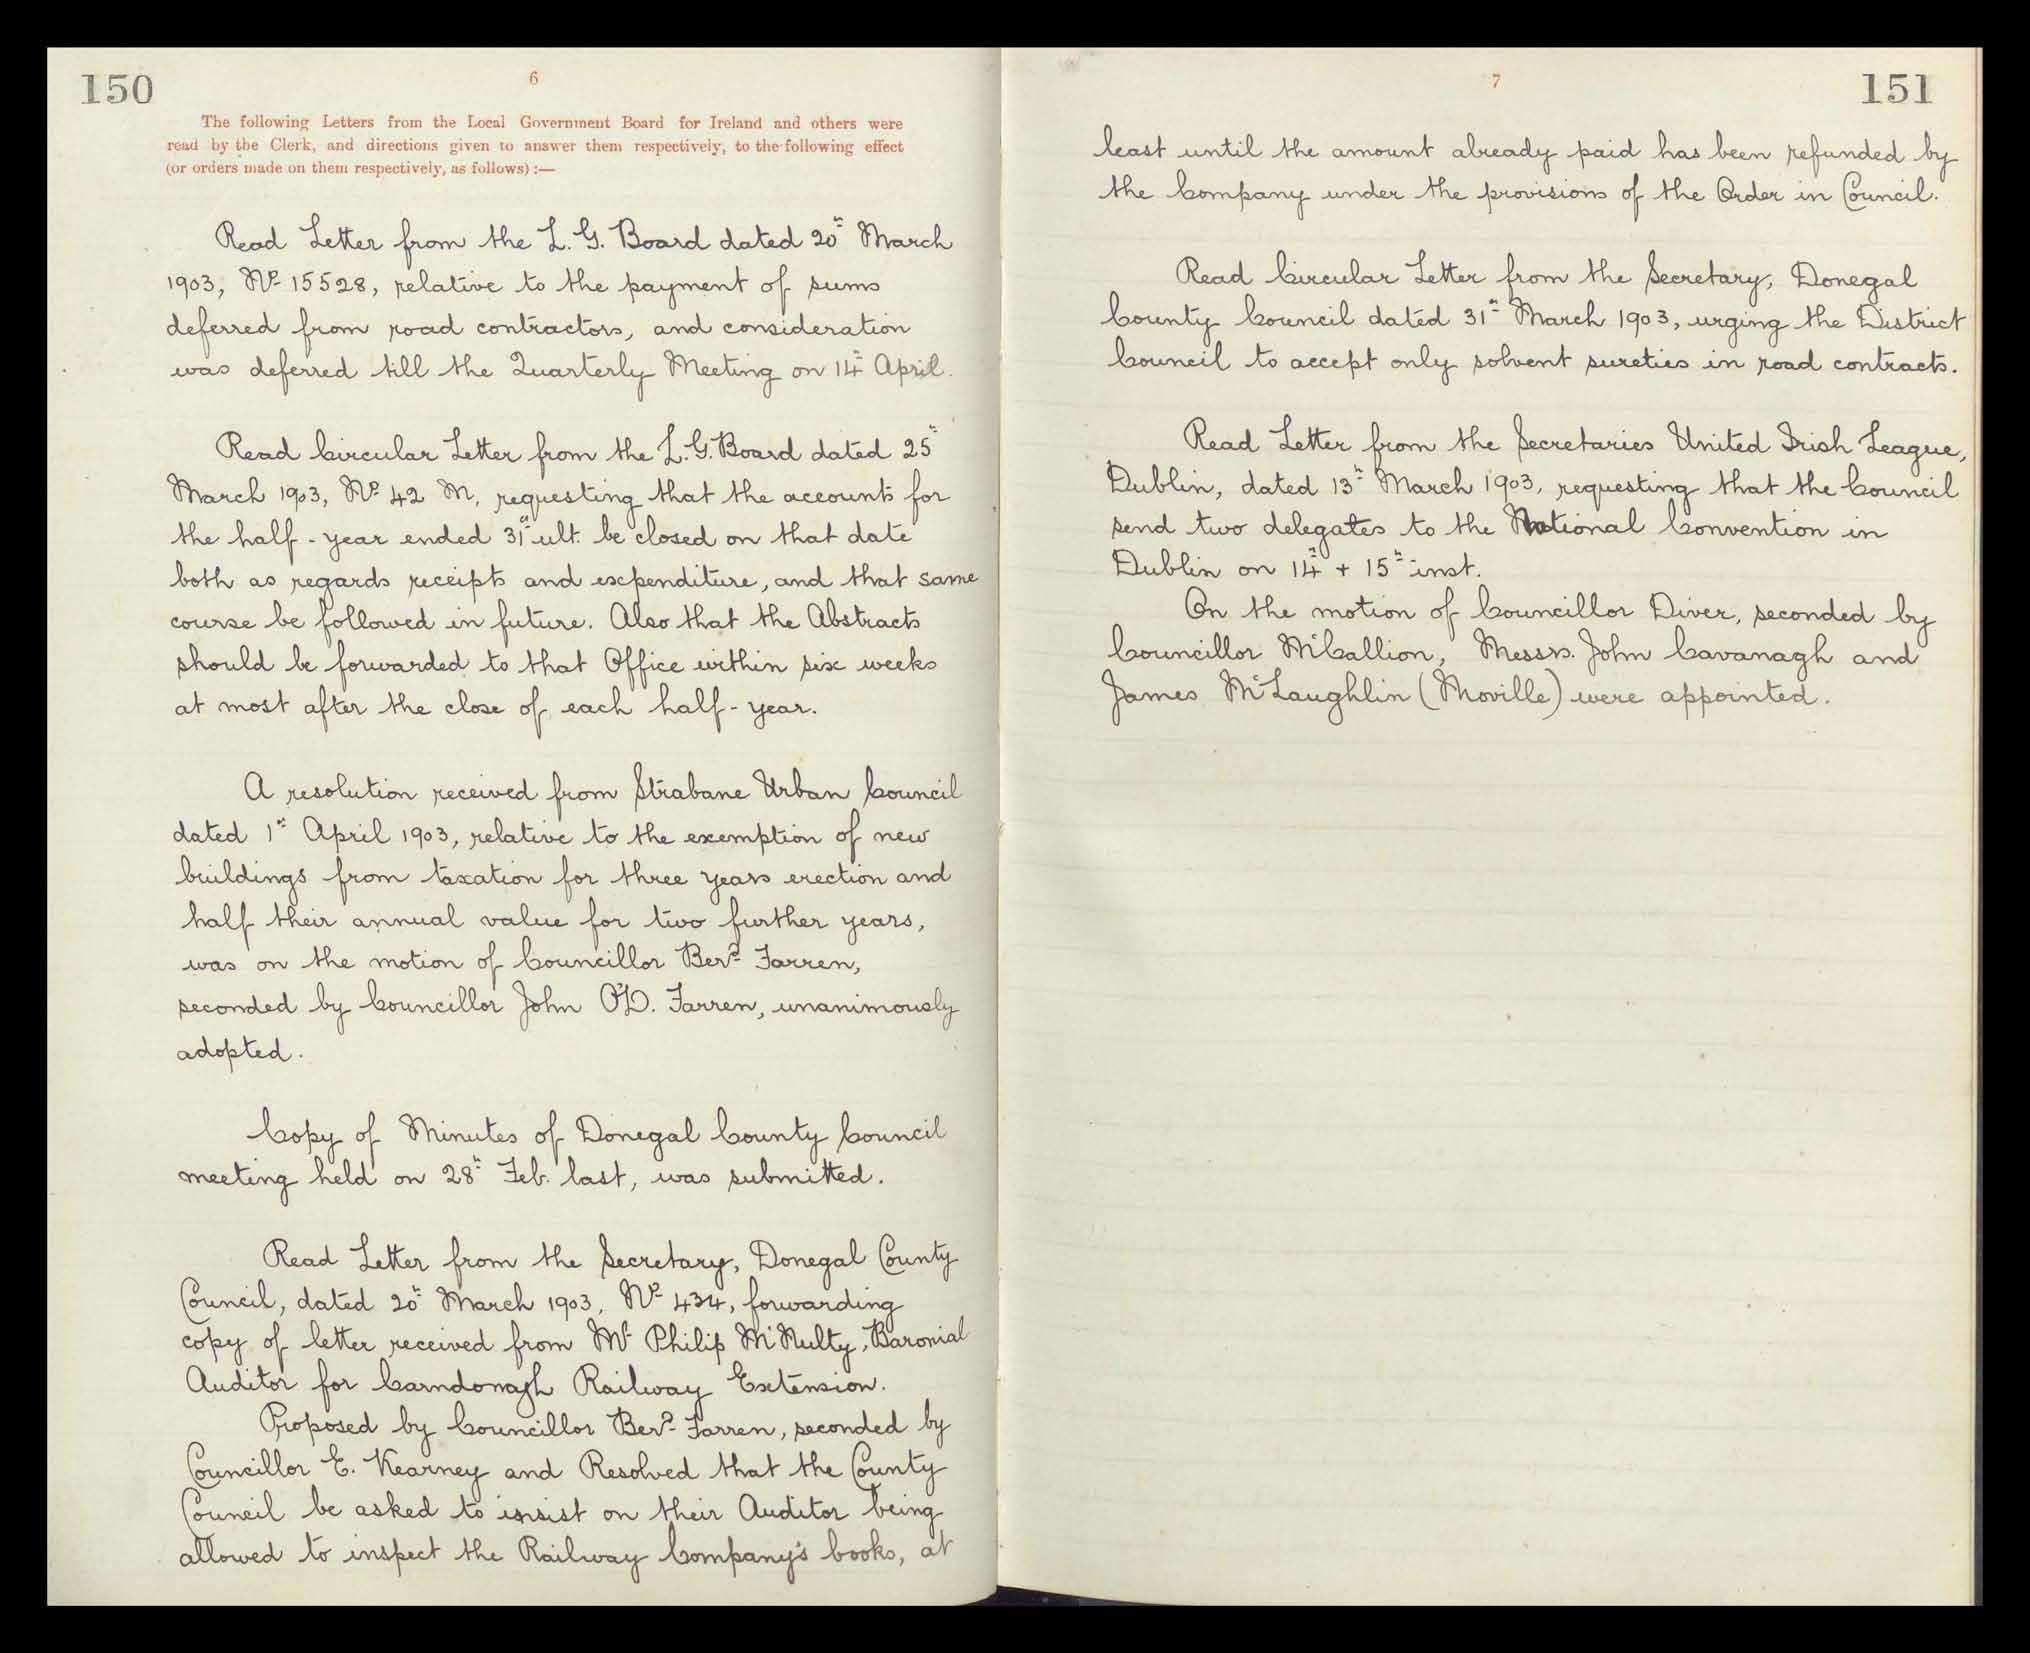 150
6
The following Letters from the Local Government Board for Ireland and others were
read by the Clerk, and directions given to answer them respectively, to the following effect
(or orders made on them respectively, as follows) :—
Read Letter from the L. G. Board dated 20th March
1903, No 15528, relative to the payment of sums
deferred from road contractors, and consideration
was deferred till the Quarterly Meeting on 14th April.
Read Circular Letter from the L. G. Board dated 25th
March 1903, No 42 M, requesting that the accounts for
the half-year ended 31st ult. be closed on that date
both as regards receipts and expenditure, and that same
course be followed in future. Also that the Abstracts
should be forwarded to that Office within six weeks
at most after the close of each half-year.
A resolution received from Strabane Urban Council
dated 1st April 1903, relative to the exemption of new
buildings from taxation for three years erection and
half their annual value for two further years,
was on the motion of Councillor Bernd Farren,
seconded by Councillor John O'D. Farren, unanimously
adopted.
Copy of Minutes of Donegal County Council
meeting held on 28th Feb. last, was submitted.
Read Letter from the Secretary, Donegal County
Council, dated 20th March 1903, No 434, forwarding
copy of letter received from Mr Philip McNulty, Baronial
Auditor for Carndonagh Railway Extension.
Proposed by Councillor Bernd Farren, seconded by
Councillor E. Kearney and Resolved that the County
Council be asked to insist on their Auditor being
allowed to inspect the Railway Company's books, at
7
151
least until the amount already paid has been refunded by
the Company under the provisions of the Order in Council.
Read Circular Letter from the Secretary, Donegal
County Council dated 31st March 1903, urging the District
Council to accept only solvent sureties in road contracts.
Read Letter from the Secretaries United Irish League,
Dublin, dated 13th March 1903, requesting that the Council
send two delegates to the National Convention in
Dublin on 14th + 15th inst.
On the motion of Councillor Diver, seconded by
Councillor McCallion, Messrs. John Cavanagh and
James McLaughlin (Moville) were appointed.